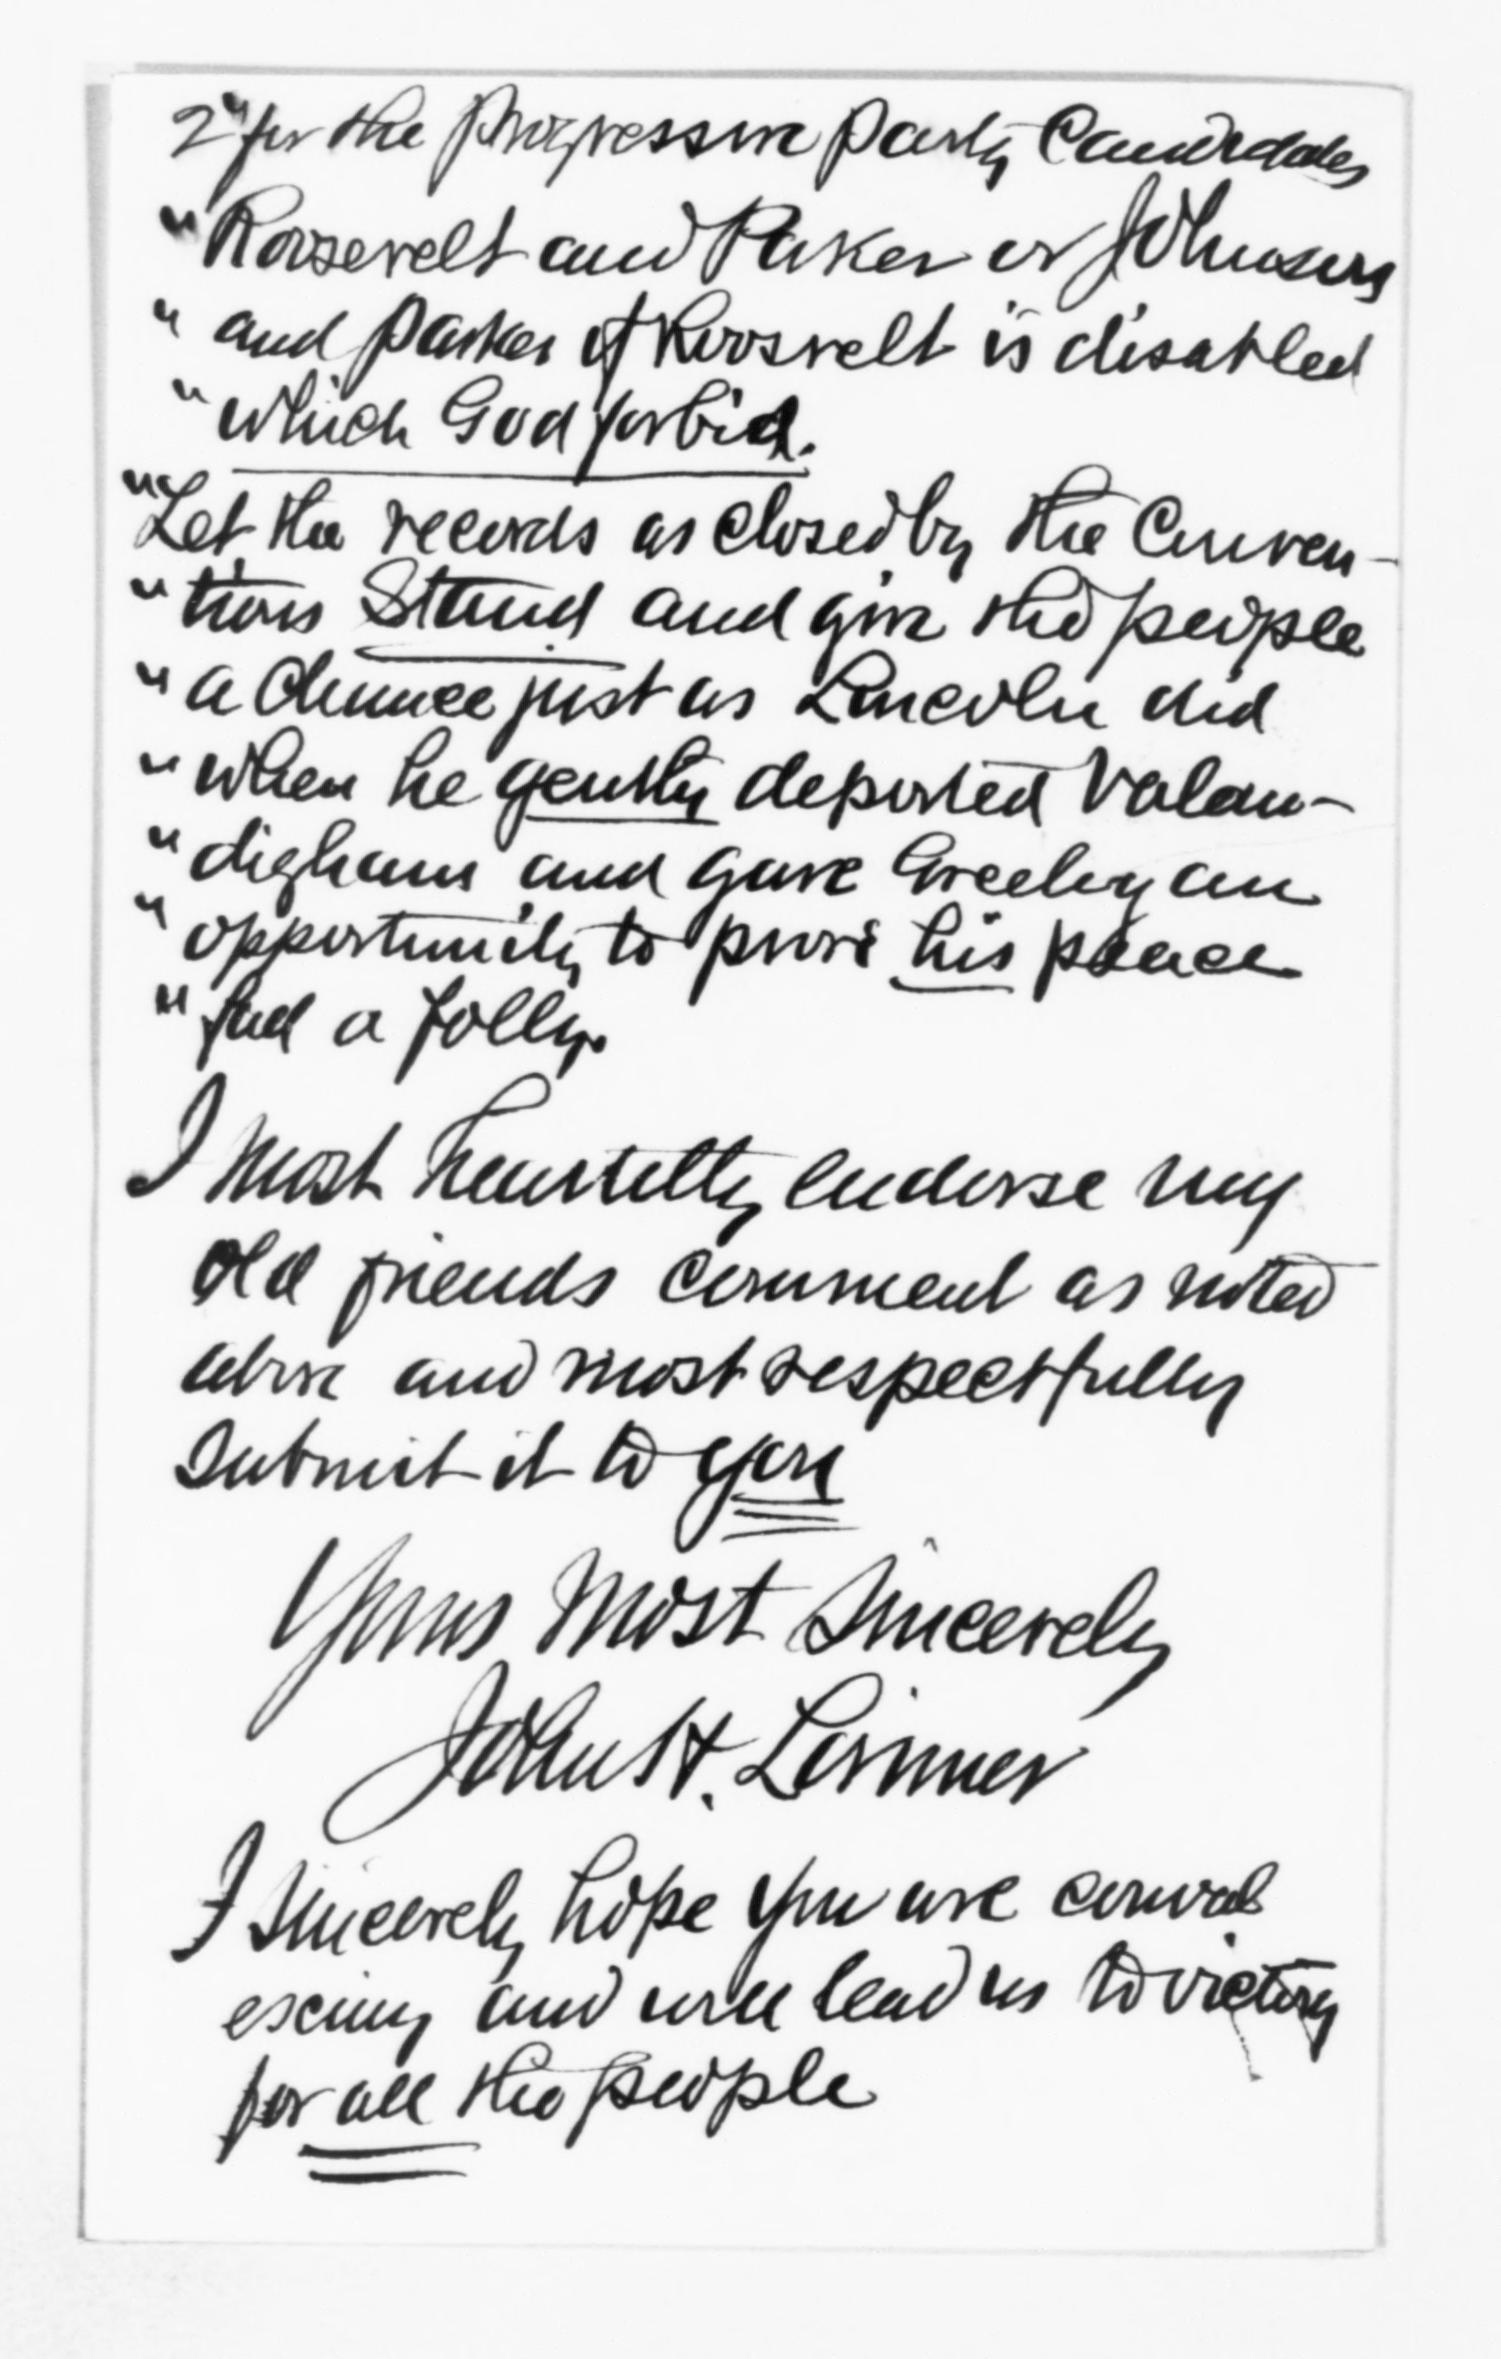 2 " for the Progressive Party Candidates
" Roosevelt and Parker or Johnson
" and Parker if Roosevelt is disabled
" which God forbid.
" Let the records as closed by the Conven-
" tions Stand and give the people
" a chance just as Lincoln did
" when he gently deported Valan-
" digham and gave Greeley an
" opportunity to prove his peace
" fad a folly.
I most heartilly endorse my
old friends comment as noted
above and most respectfully
submit it to you
Yours Most Sincerely
John H. Lorimer
I sincerely hope you are conval
escing and will lead us to victory
for all the people